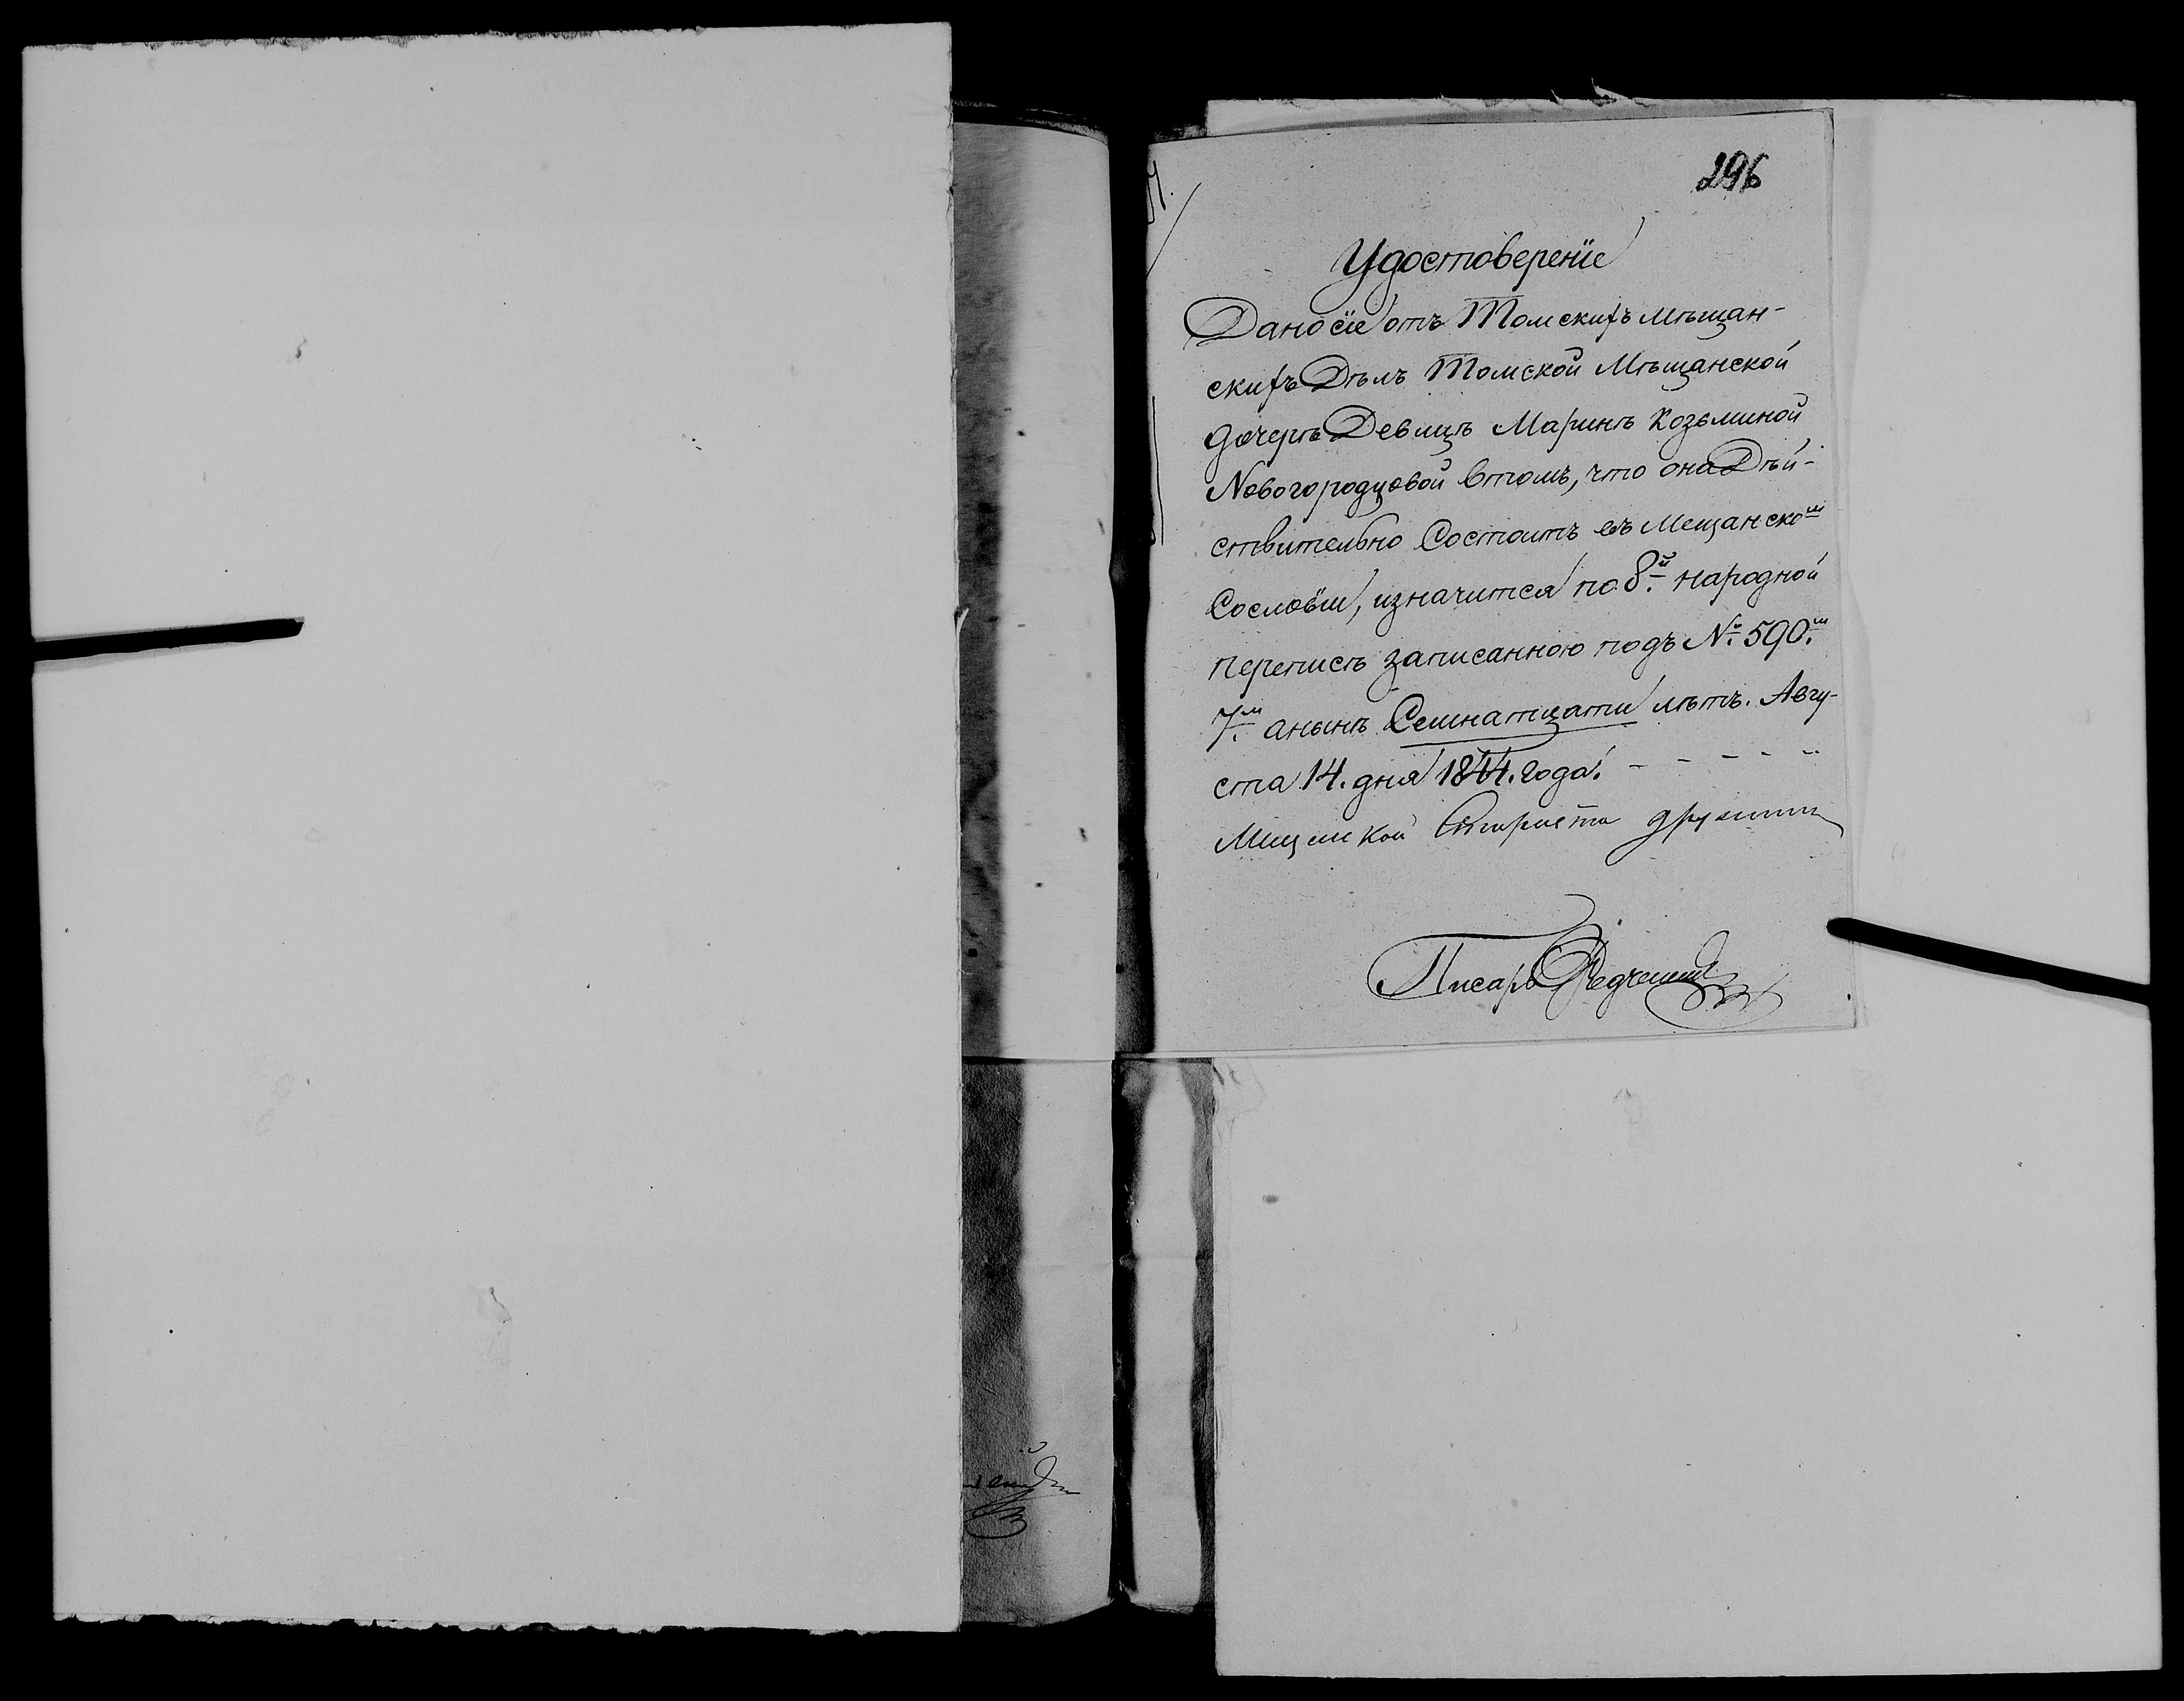 296
Удостоверенїе
Дано сїе отъ Томскихъ мѣщан-
скихъ Дѣлъ Томской Мѣщанской
дочерѣ Девицѣ Маринѣ Козьминой
Новогородцовой втомъ, что она Дѣй-
ствительно Состоитъ въ Мещанском
Сословїи, изначится по 8.й народной
переписѣ записанною подъ №. 590.м
7.м анынѣ Семнатцати лѣтъ. Авгу-
ста 14. дня 1844. года. - - - - -
Писарь